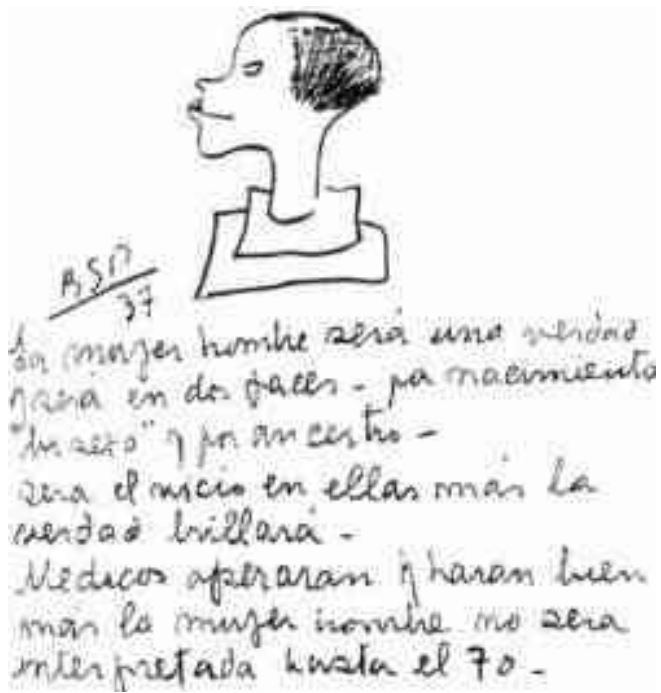 BSP
37
La mujer hombre será una verdad
en dos faces - por nacimiento
y por ancestro -
sera el vicio en ellas más la
verdad brillará -
Medicos operaran y haran bien
más la mujer hombre no sera
interpretada hasta el 70 -